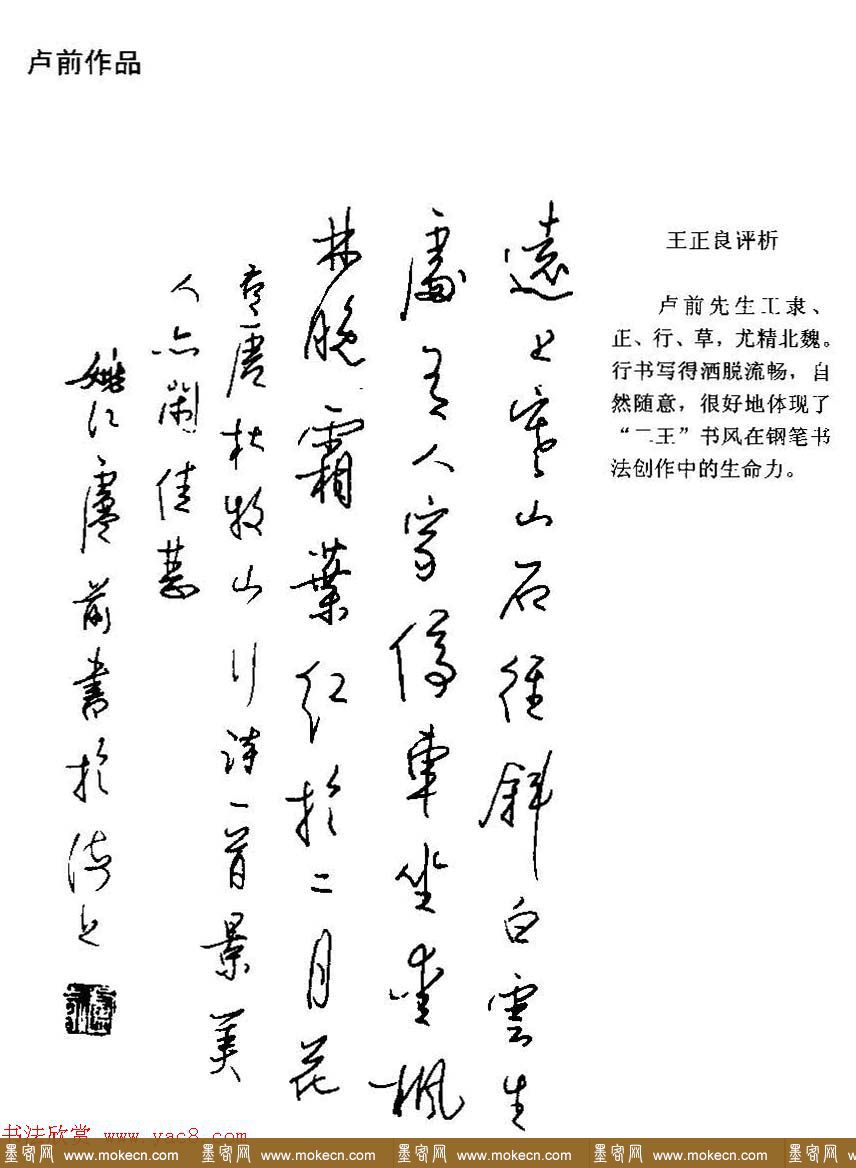 卢前作品
遠上寒山石徑斜白雲生
處有人家停車坐愛楓
林晚霜葉紅於二月花
唐杜牧山行詩一首景美
人亦
佳
盧前書於滬上
王正良评析
卢前先生工隶、
正、行、草，尤精北魏。
行书写得洒脱流畅，自
然随意，很好地体现了
“二王”书风在钢笔书
法创作中的生命力。
书法欣赏 www.yac8.com
墨客网 www.mokecn.com 墨客网 www.mokecn.com 墨客网 www.mokecn.com 墨客网 www.mokecn.com 墨客网 w